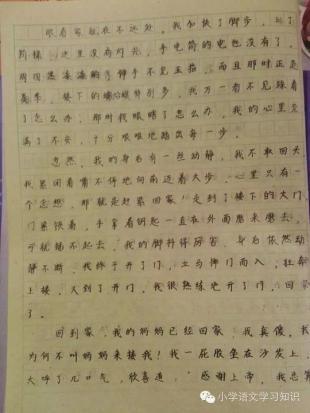 眼看家就在不远处，我加快了脚步，到了
阶梯，这里没有灯光，手电筒的电也没有了，
周围黑漆漆的伸手不见五指，而且那时正是
夏季，楼下的蟑螂特别多，我万一看不见踩着
了怎么办，那时我瞎了怎么办，我的心里充
满了不安，十分艰难地踏出每一步。
忽然，我的身后有一丝动静，我不敢回头
我紧闭着嘴不停地向前迈着大步，心里只有一
个念想，那就是赶紧回家！走到了楼下的大门
门紧锁着，手拿着钥匙一直在外面磨来磨去，
可就插不起去，我的脚抖得厉害，身后依然动
静不断，我终于开了门，立马伸门而入，狂奔
上楼，又到了开门，我很熟练地开了门，回家
了。
回到家，我的妈妈已经回家，我真傻，我
为何不叫妈妈来接我！我一屁股坐在沙发上，
大呼了几口气，欣喜道：“感谢上帝，我总算
小学语文学习知识